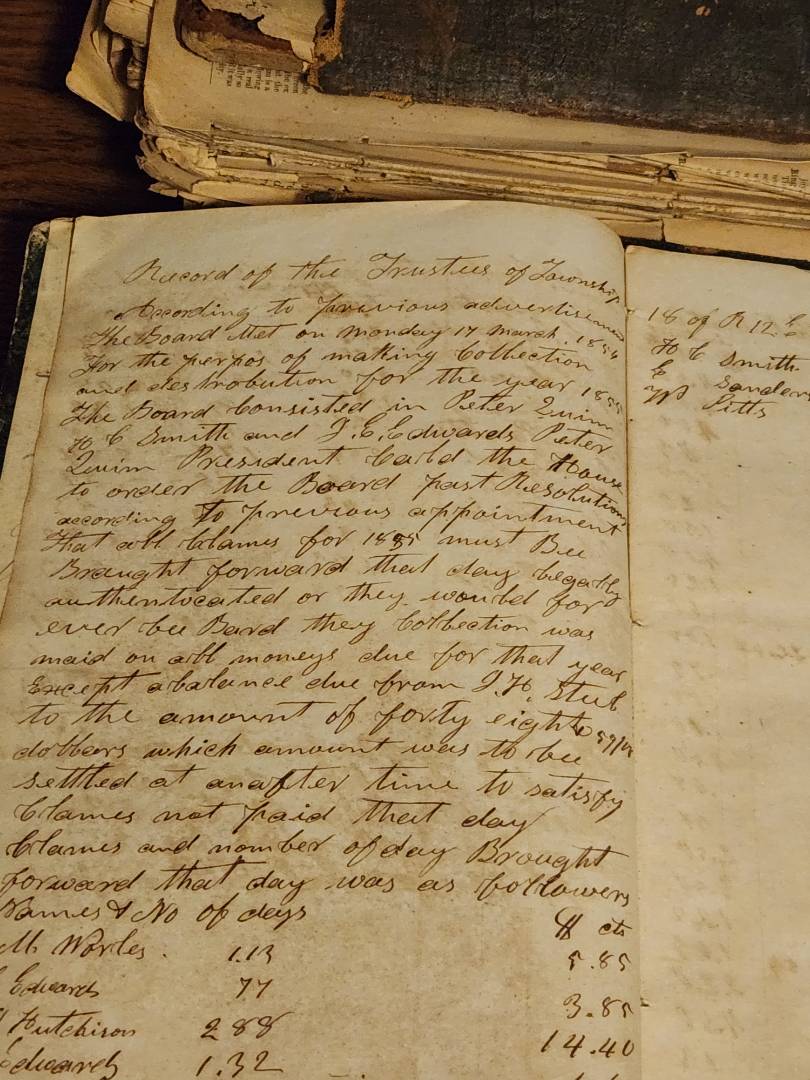 Record of the Trustees of Township
According to previous advertisement
The Board Met on Monday 17 March. 1856
For the perpos of making Collection
and destrobution for the year 1855
The Board Consisted in Peter Quim
H C Smith and J. E. Edwards Peter
Quim President Calld the House
to order the Board past Resolutions
according to previous appointment
that all Clames for 1855 must Bee
Braught forward that day legally
authentocated or they would for
ever bee Bard they Collection was
maid on all moneys due for that year
Except abalance due from J. H. Stub
to the amount of forty eight
dollars which amount was to be
settled at anafter time to satisfy
Clames not paid that day
Clames and nomber of day Brought
forward that day was as followers
Names & No of days $ cts
M. Worles. 1.13 5.85
Edwards 77 3.85
Hutchison 288 14.40
Edwards 1.32
18 of R 12 E
H C Smith
E Sanders
Pitts